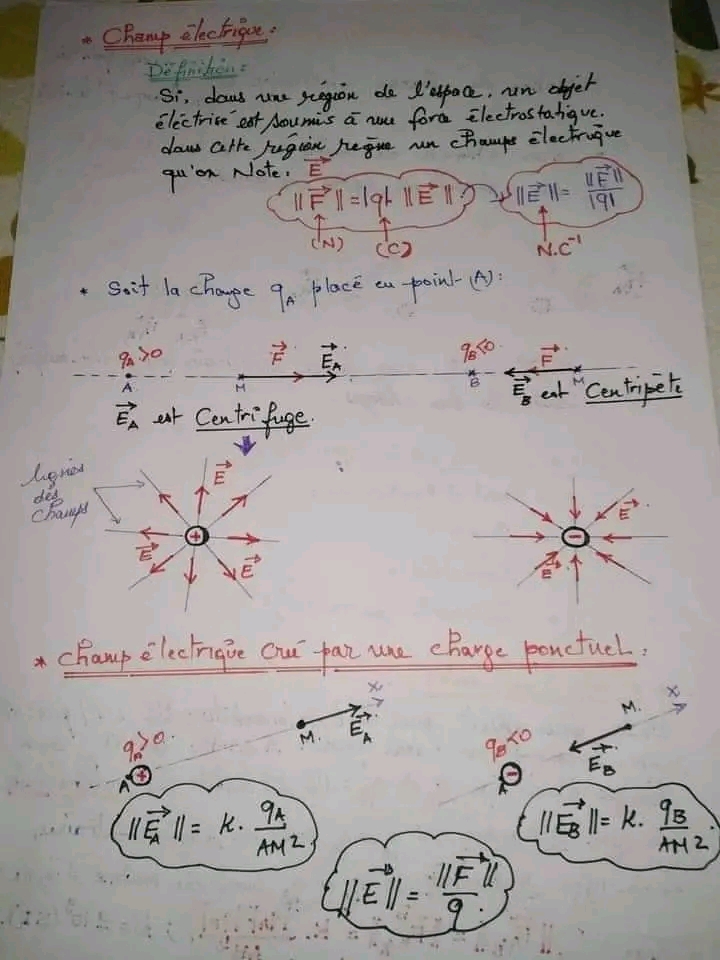 * Champ électrique :
Définition :
Si, dans une région de l'espace, un objet
électrisé est soumis à une force électrostatique.
dans cette région règne un champs électrique
qu'on Note. E⃗
||F⃗|| = |q|. ||E⃗|| ||E⃗|| = ||F⃗|| / |q|
(N) (C) N.C⁻¹
* Soit la charge qA placé en point (A) :
qA>0 F⃗ E⃗A qB<0 F⃗
A M B M
E⃗A est Centrifuge. E⃗B est Centripète
lignes
des
champs
E⃗ E⃗ E⃗
+ -
E⃗ E⃗
* Champ électrique créé par une charge ponctuel :
x x
M. E⃗A M. E⃗B
qA>0 qB<0
A + A -
||E⃗A|| = K. qA / AM² ||E⃗B|| = K. qB / AM²
||E⃗|| = ||F⃗|| / q.